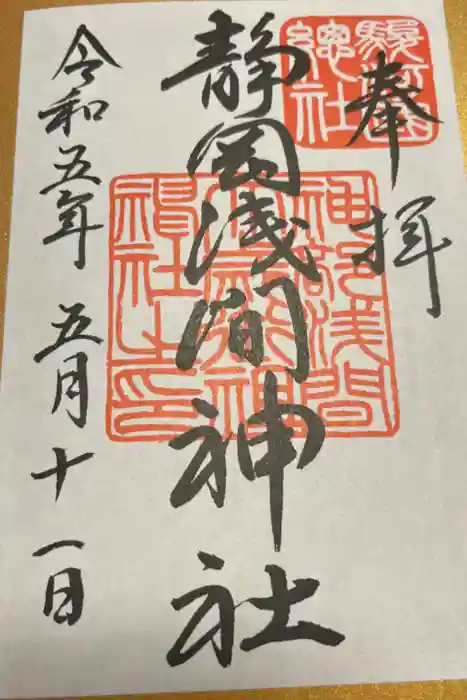 奉拝
駿河國
總社
静岡浅間神社
神部浅間
令和五年五月十一日